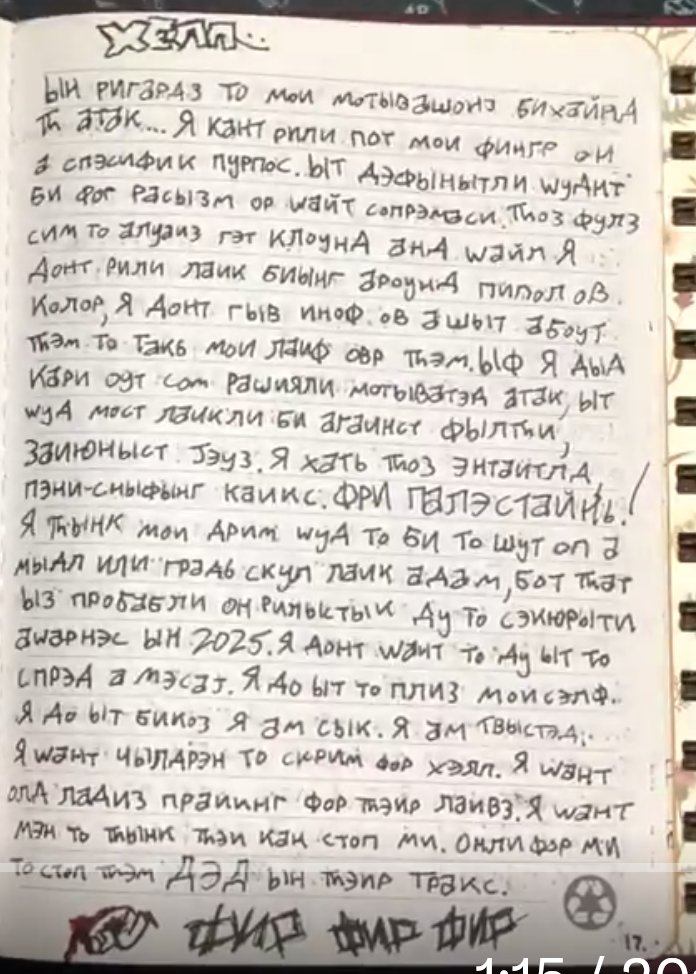 ХЕЛП..
ЫН РИГЭРДЗ ТО МОИ МОТЫВЭШОНЗ БИХАЙНД
ТҺ ЭТАК... Я КАНТ РИЛИ ПОТ МОИ ФИНГР ОН
Э СПЭСИФИК ПУРПОС. ЫТ ДЭФЫНЫТЛИ WУДНТ
БИ ФОР РАСЫЗМ ОР WАЙТ СОПРЭМЭСИ. ТҺОЗ ФУЛЗ
СИМ ТО ЭЛУАИЗ ГЭТ КЛОУНД ЭНД WАЙЛ Я
ДОНТ РИЛИ ЛАИК БИЫНГ ЭРОУНД ПИПОЛ ОВ
КОЛОР, Я ДОНТ ГЫВ ИНОФ ОВ Э ШЫТ ЭБОУТ
ТҺЭМ ТО ТАКЬ МОИ ЛАИФ ОВР ТҺЭМ. ЫФ Я ДЫД
КАРИ ОУТ СОМ РАШИЯЛИ МОТЫВЭТЭД ЭТАК, ЫТ
WУД МОСТ ЛАИКЛИ БИ ЭГАИНСТ ФЫЛТҺИ,
ЗАИЮНЫСТ JЭУЗ. Я ХАТЬ ТҺОЗ ЭНТАЙТЛД,
ПЭНИ-СНЫФЫНГ КАИКС. ФРИ ПАЛЭСТАЙНЬ!
Я ТҺЫНК МОИ ДРИМ WУД ТО БИ ТО ШУТ ОП Э
МЫДЛ ИЛИ ГРЭДЬ СКУЛ ЛАИК ЭДАМ, БОТ ТҺАТ
ЫЗ ПРОБЭБЛИ ОНРИЛЫКТЫК ДУ ТО СЭКЮРЫТИ
ЭWЭРНЭС ЫН 2025. Я ДОНТ WАНТ ТО ДУ ЫТ ТО
СПРЭД Э МЭСЭJ. Я ДО ЫТ ТО ПЛИЗ МОИСЭЛФ.
Я ДО ЫТ БИКОЗ Я ЭМ СЫК. Я ЭМ ТВЫСТЭД.
Я WАНТ ЧЫЛДРЭН ТО СКРИМ ФОР ХЭЛП. Я WАНТ
ОЛД ЛАДИЗ ПРАЙИНГ ФОР ТҺЭИР ЛАЙВЗ. Я WАНТ
МЭН ТО ТҺЫНК ТҺЭИ КАН СТОП МИ. ОНЛИ ФОР МИ
ТО СТОП ТҺЭМ ДЭД ЫН ТҺЭИР ТРАКС.
ФИР ФИР ФИР
17.